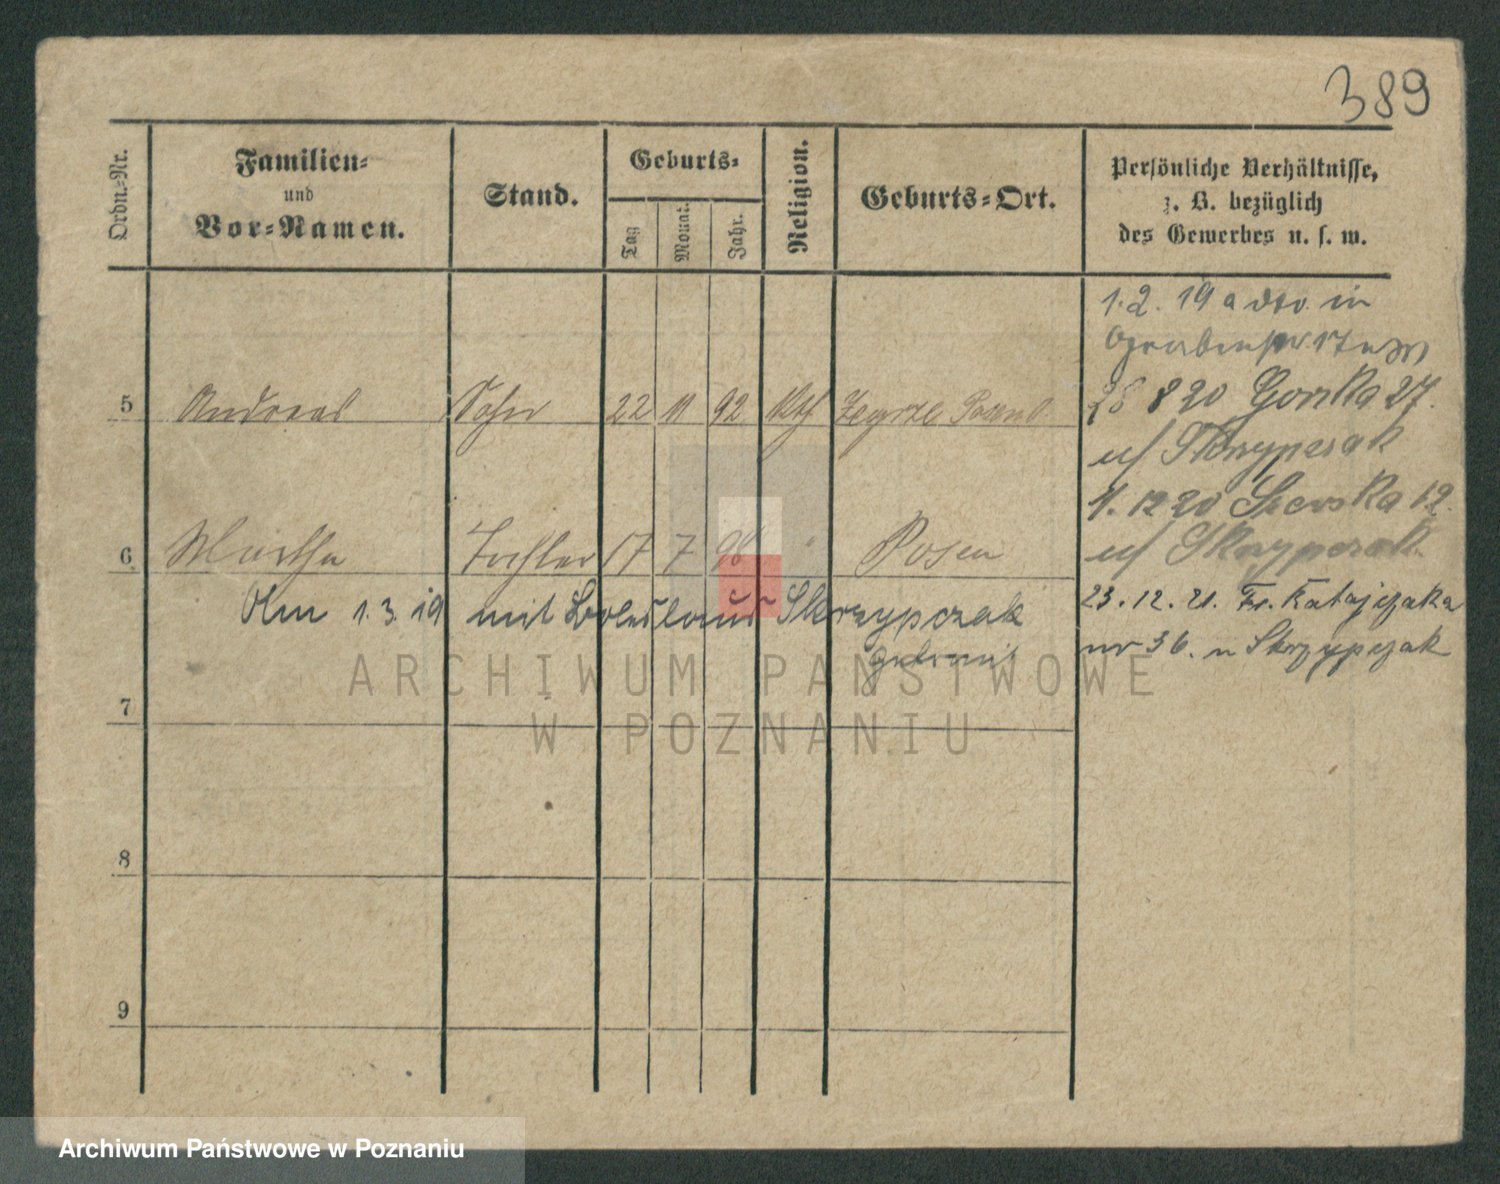 389
Ordn.-Nr.
Familien-
und
Vor-Namen.
Stand.
Geburts-
Tag
Monat.
Jahr.
Religion.
Geburts-Ort.
Persönliche Verhältnisse,
z. B. bezüglich
des Gewerbes u. s. w.
1. 2. 19 a dto. in
5 Andreas Sohn 22 11 92 kth Posen O.
28 8 20 Gorska 27.
u/ Skrypczak
1. 12 20 Szewska 12.
u/ Skrypczak
6 Martha Tochter 17 7 98 " Posen
Am 1. 3. 19 mit Boleslaus Skrzypczak
getraut
23. 12. 21. Fr. Ratajczaka
nr 36. u Skrzypczak
7
8
9
ARCHIWUM PAŃSTWOWE
W POZNANIU
Archiwum Państwowe w Poznaniu